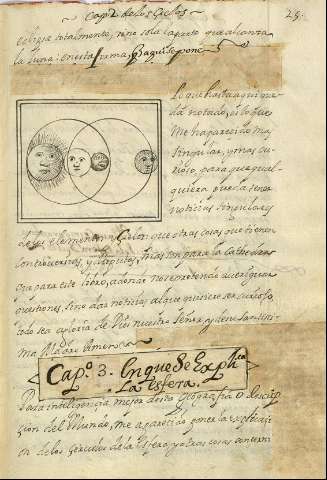 Cap. 2. de los Cielos 25.
eclipse totalmente, sino sola la parte que alcanza
la luna: en esta forma, q̃ aqui se pone
Lo que hasta aqui que
da notado, es lo que
me ha parecido mas
singular, y mas cu
rioso, para que qual
quiera pueda tener
noticias singulares
de los elementos, y Cielos que otras cosas que tienen
son para la Cathedra
para este libro, a donde no se pretende averiguar
questiones, sino dar noticias al que quisiere ser curioso,
todo sea a gloria de Dios nuestro Señor, y de su Santissi
ma Madre Amen
Capo. 3. En que se Explica
La esfera.
Para inteligencia mejor desta Geografia o descrip
çion del Mundo, me a parecido poner la explicaçion
de los circulos de la Esfera, y otras cosas